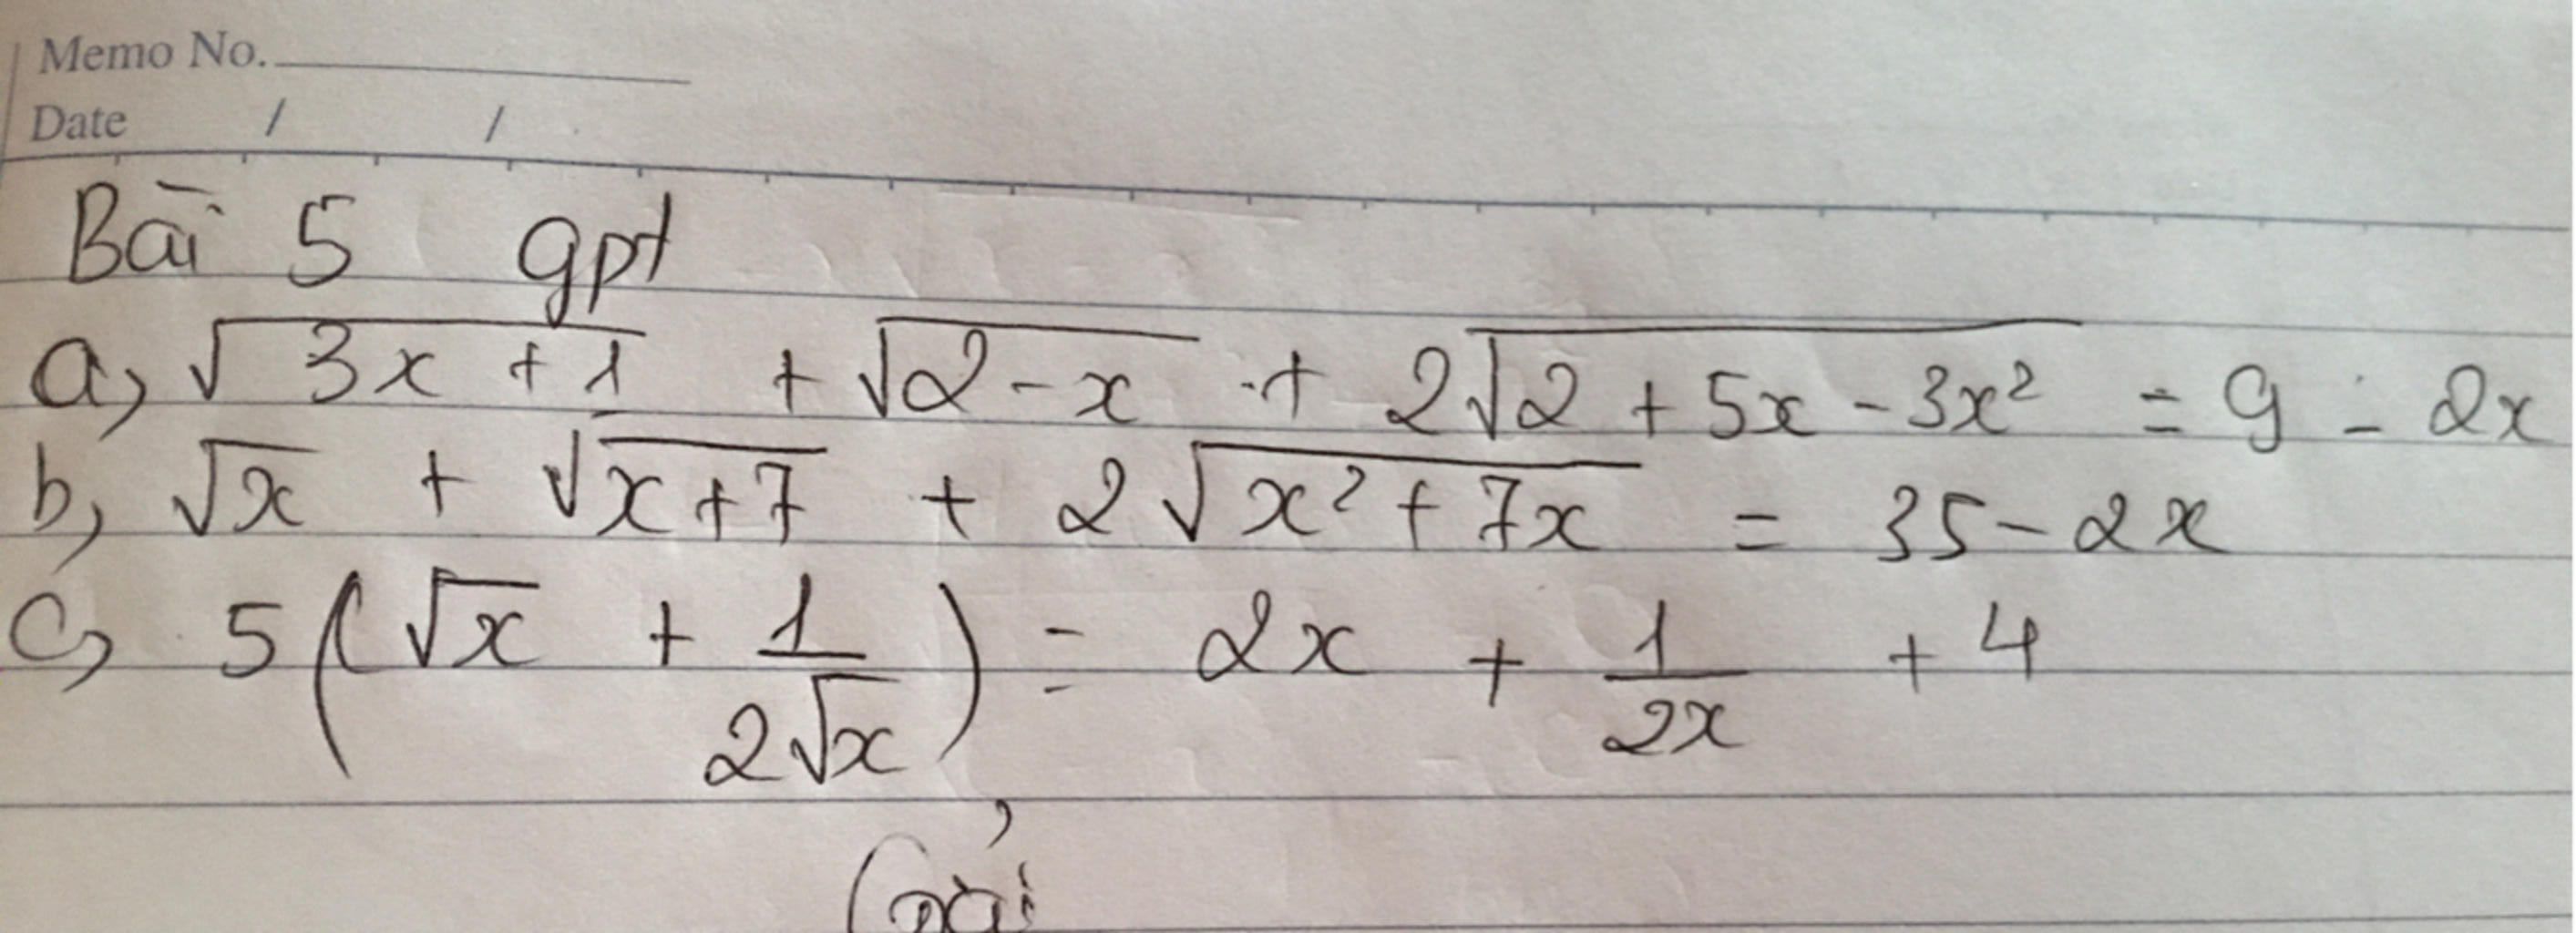 Memo No.
Date / /
Bài 5 gpt
a, √(3x + 1) + √(2 - x) + 2√(2 + 5x - 3x²) = 9 - 2x
b, √x + √(x + 7) + 2√(x² + 7x) = 35 - 2x
c, 5(√x + 1/(2√x)) = 2x + 1/(2x) + 4
Giải